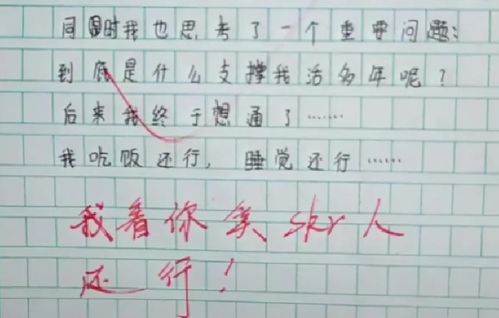 同时我也思考了一个重要问题：
到底是什么支撑我活多年呢？
后来我终于想通了……
我吃饭还行，睡觉还行……
我看你笑skr人
还行！